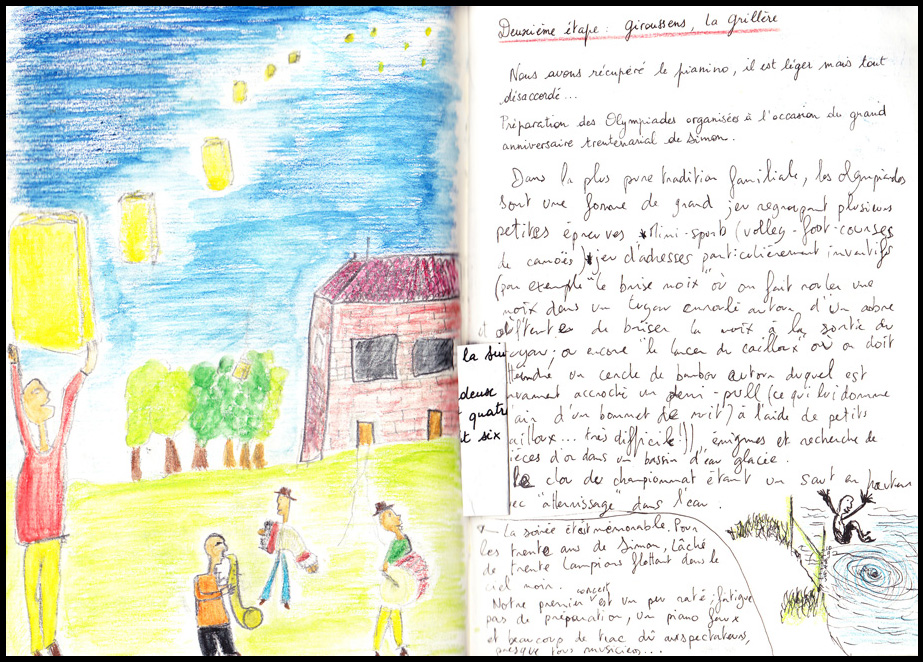 Deuxième étape. Giroussens, la Grillère
Nous avons récupéré le pianino, il est léger mais tout
désaccordé...
Préparation des Olympiades organisées à l'occasion du grand
anniversaire trentenarial de Simon.
Dans la plus pure tradition familiale, les olympiades
sont une forme de grand jeu regroupant plusieurs
petites épreuves Mini-sports (volley-foot-courses
de canoës) jeu d'adresses particulièrement inventifs
(par exemple "le brise noix" où on fait rouler une
noix dans un tuyau enroulé autour d'un arbre
et de briser la noix à la sortie du
tuyau; ou encore "le lancer du cailloux" où on doit
atteindre un cercle de bambou autour duquel est
accroché un demi-pull (ce qui lui donne
l'air d'un bonnet de nuit) à l'aide de petits
cailloux... très difficile!), énigmes et recherche de
pièces d'or dans un bassin d'eau glacée.
Le clou de championnat étant un saut en hauteur
avec "atterrissage" dans l'eau.
la sui
deux
quatr
t six
La soirée était mémorable. Pour
les trente ans de Simon, lâché
de trente lampions flottant dans le
ciel noir.
Notre premier concert est un peu raté; fatigue
pas de préparation, un piano faux
et beaucoup de trac dû aux spectateurs,
presque tous musiciens...